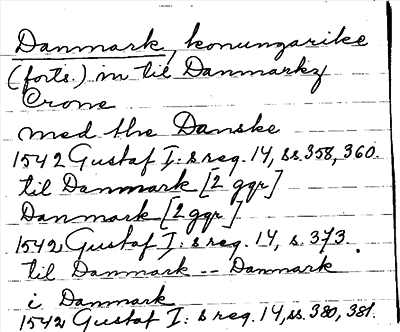 Danmark, konungarike
(forts.) in til Danmarkz
Crone
med the Danske
1542 Gustaf I:s reg. 14, ss. 358, 360.
til Danmark [2 ggr]
Danmark [2 ggr]
1542 Gustaf I:s reg. 14, s. 373.
til Danmark -- Danmark
i Danmark
1542 Gustaf I:s reg. 14, ss. 380, 381.